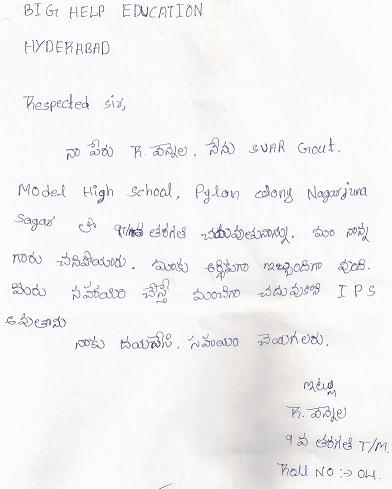 BIG HELP EDUCATION
HYDERABAD
Respected sir,
నా పేరు K. వెన్నెల. నేను SVAR Govt.
Model High School, Pylon colony Nagarjuna
Sagar లో 9వ తరగతి చదువుతున్నాను. మా నాన్న
గారు చనిపోయారు. మాకు ఆర్థికంగా ఇబ్బందిగా వుంది.
మీరు సహాయం చేస్తే మంచిగా చదువుకొని IPS
అవుతాను
నాకు దయచేసి. సహాయం చెయగలరు.
ఇట్లు
K. వెన్నెల
9 వ తరగతి T/M.
Roll NO :-> 04.